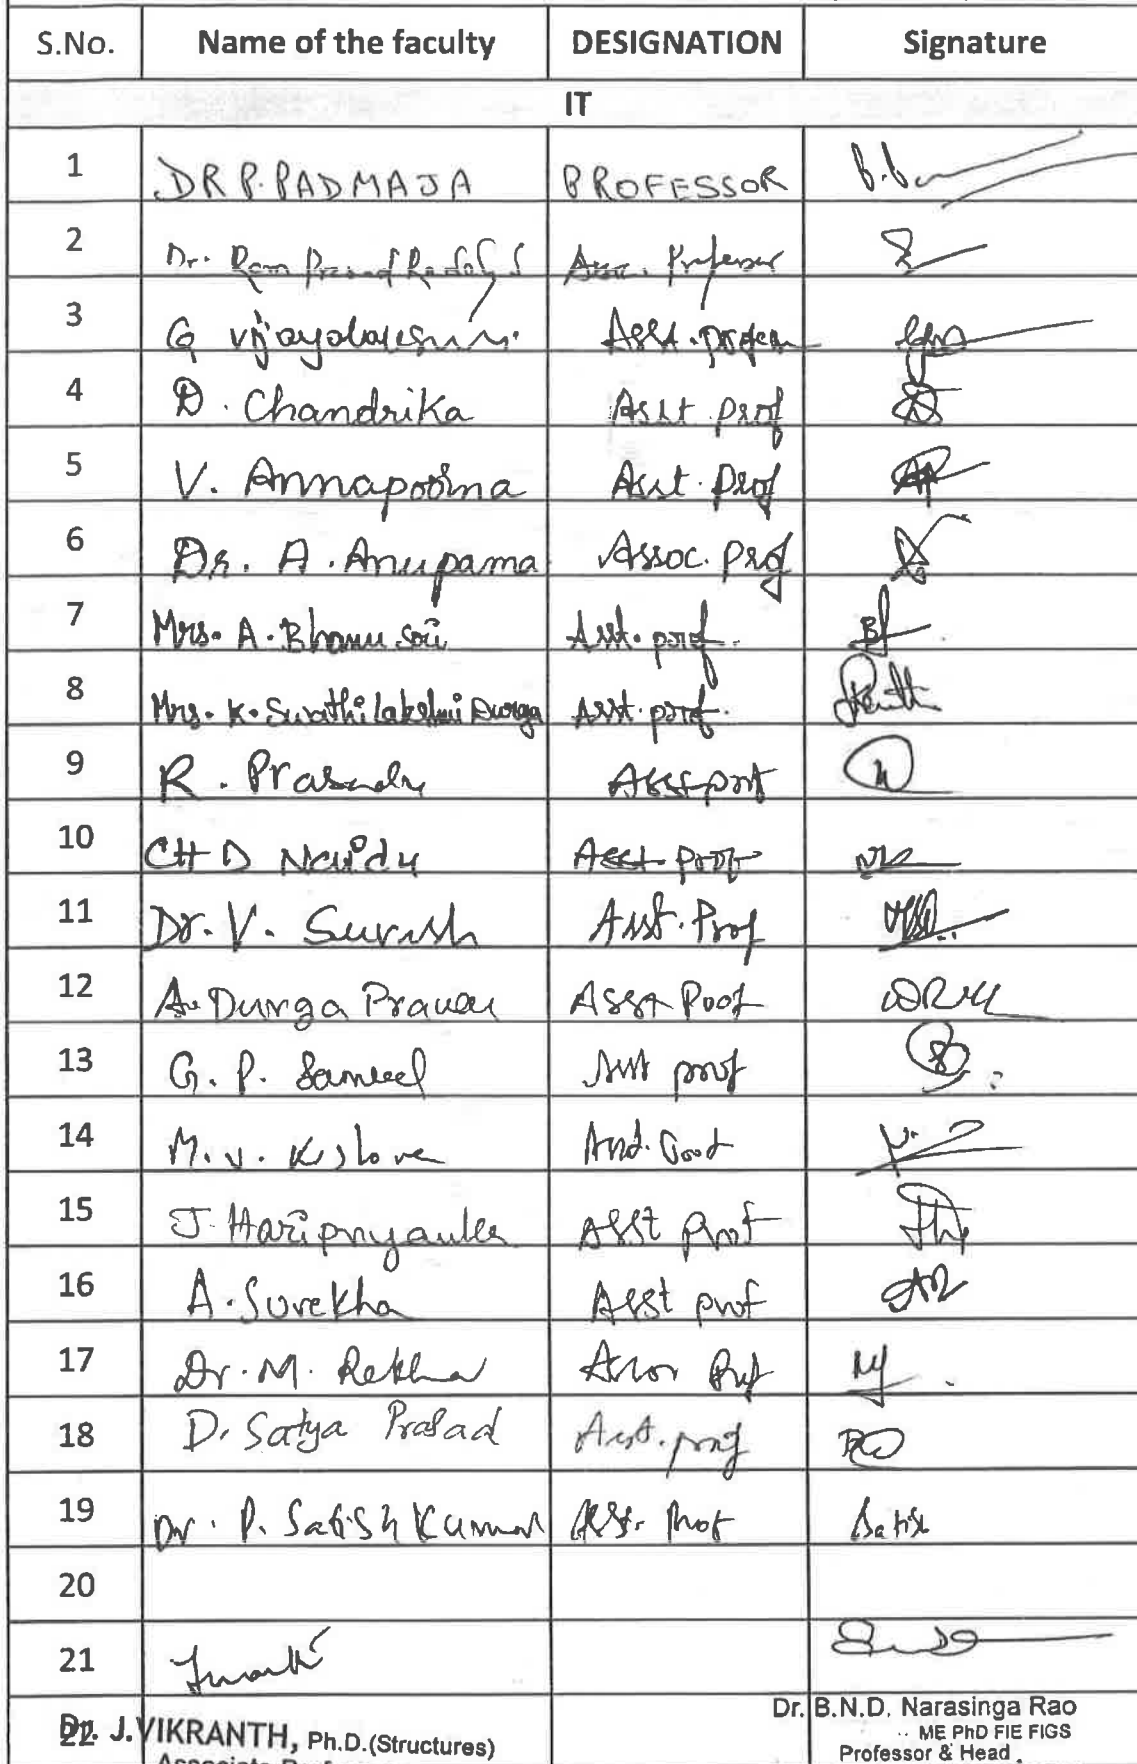 S.No. Name of the faculty DESIGNATION Signature
IT
1 DR P. PADMAJA PROFESSOR
2 Dr. Ram Prasad Reddy S Assoc. Professor
3 G Vijayalakshmi Asst. profess
4 D. Chandrika Asst. prof
5 V. Annapoorna Asst. prof
6 Dr. A. Anupama Assoc. prof
7 Mrs. A. Bhanu Sri Asst. prof.
8 Mrs. K. Swathi Lakshmi Durga Asst. prof.
9 R. Asst prof
10 CH D Naidu Asst prof
11 Dr. V. Suresh Asst. Prof
12 A. Durga Praveen Asst Prof
13 G. P. Samuel Asst prof
14 M. V. Kishore Asst. Prof
15 J. Haripriyanka Asst Prof
16 A. Surekha Asst prof
17 Dr. M. Rekha Assoc Prof
18 D. Satya Prasad Asst. prof
19 Dr. P. Satish Kumar Asst. Prof Satish
20
21
22
Dr. J. VIKRANTH, Ph.D.(Structures)
Dr. B.N.D. Narasinga Rao
ME PhD FIE FIGS
Professor & Head